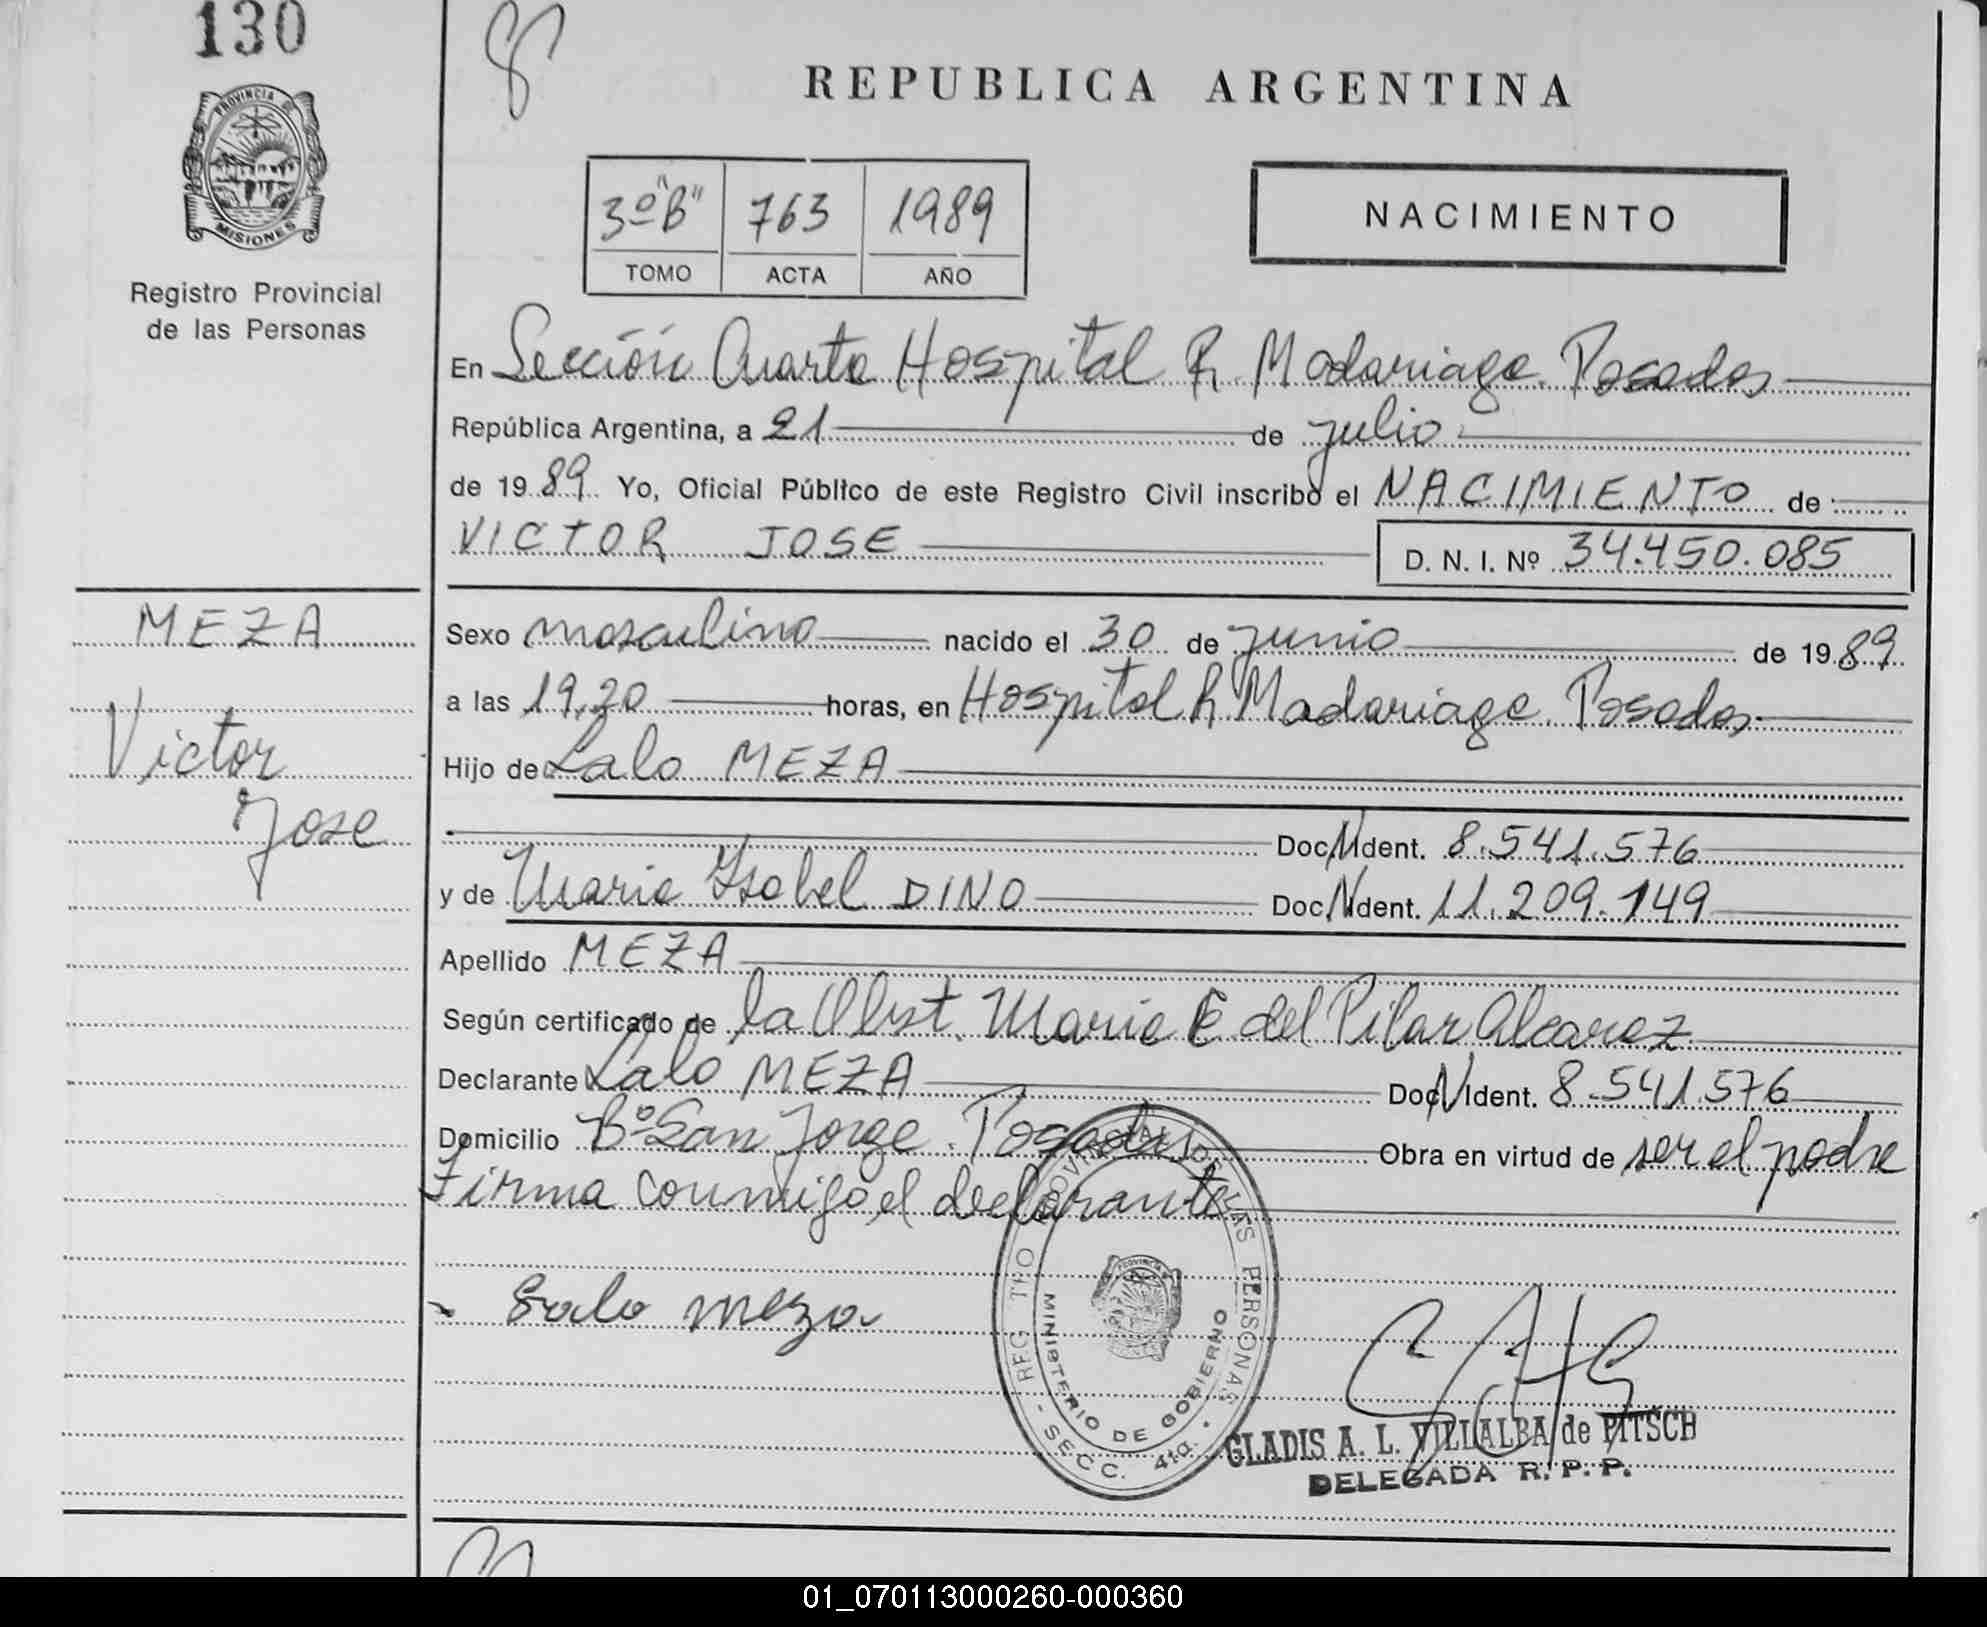 130
PROVINCIA DE
MISIONES
Registro Provincial
de las Personas
REPUBLICA ARGENTINA
3º "B" 763 1989
TOMO ACTA AÑO
NACIMIENTO
En Sección Cuarta Hospital R Madariaga. Posadas
República Argentina, a 21 de julio
de 19 89 Yo, Oficial Público de este Registro Civil inscribo el NACIMIENTO de
VICTOR JOSE D. N. I. Nº 34.450.085
MEZA
Victor
Jose
Sexo masculino nacido el 30 de junio de 19 89
a las 19,20 horas, en Hospital R Madariaga. Posadas
Hijo de Lalo MEZA
Doc. Ident. 8.541.576
y de Maria Ysabel DINO Doc. Ident. 11.209.149
Apellido MEZA
Según certificado de la Obst. Maria E del Pilar Alcaraz
Declarante Lalo MEZA Doc. Ident. 8.541.576
Domicilio Bº San Jorge. Posadas Obra en virtud de ser el padre
Firma conmigo, el declarante
Lalo meza
REGISTRO PROVINCIAL DE LAS PERSONAS
MINISTERIO DE GOBIERNO
- SECC. 4ta. -
GLADIS A. L. VILLALBA de PITSCH
DELEGADA R. P. P.
01_070113000260-000360